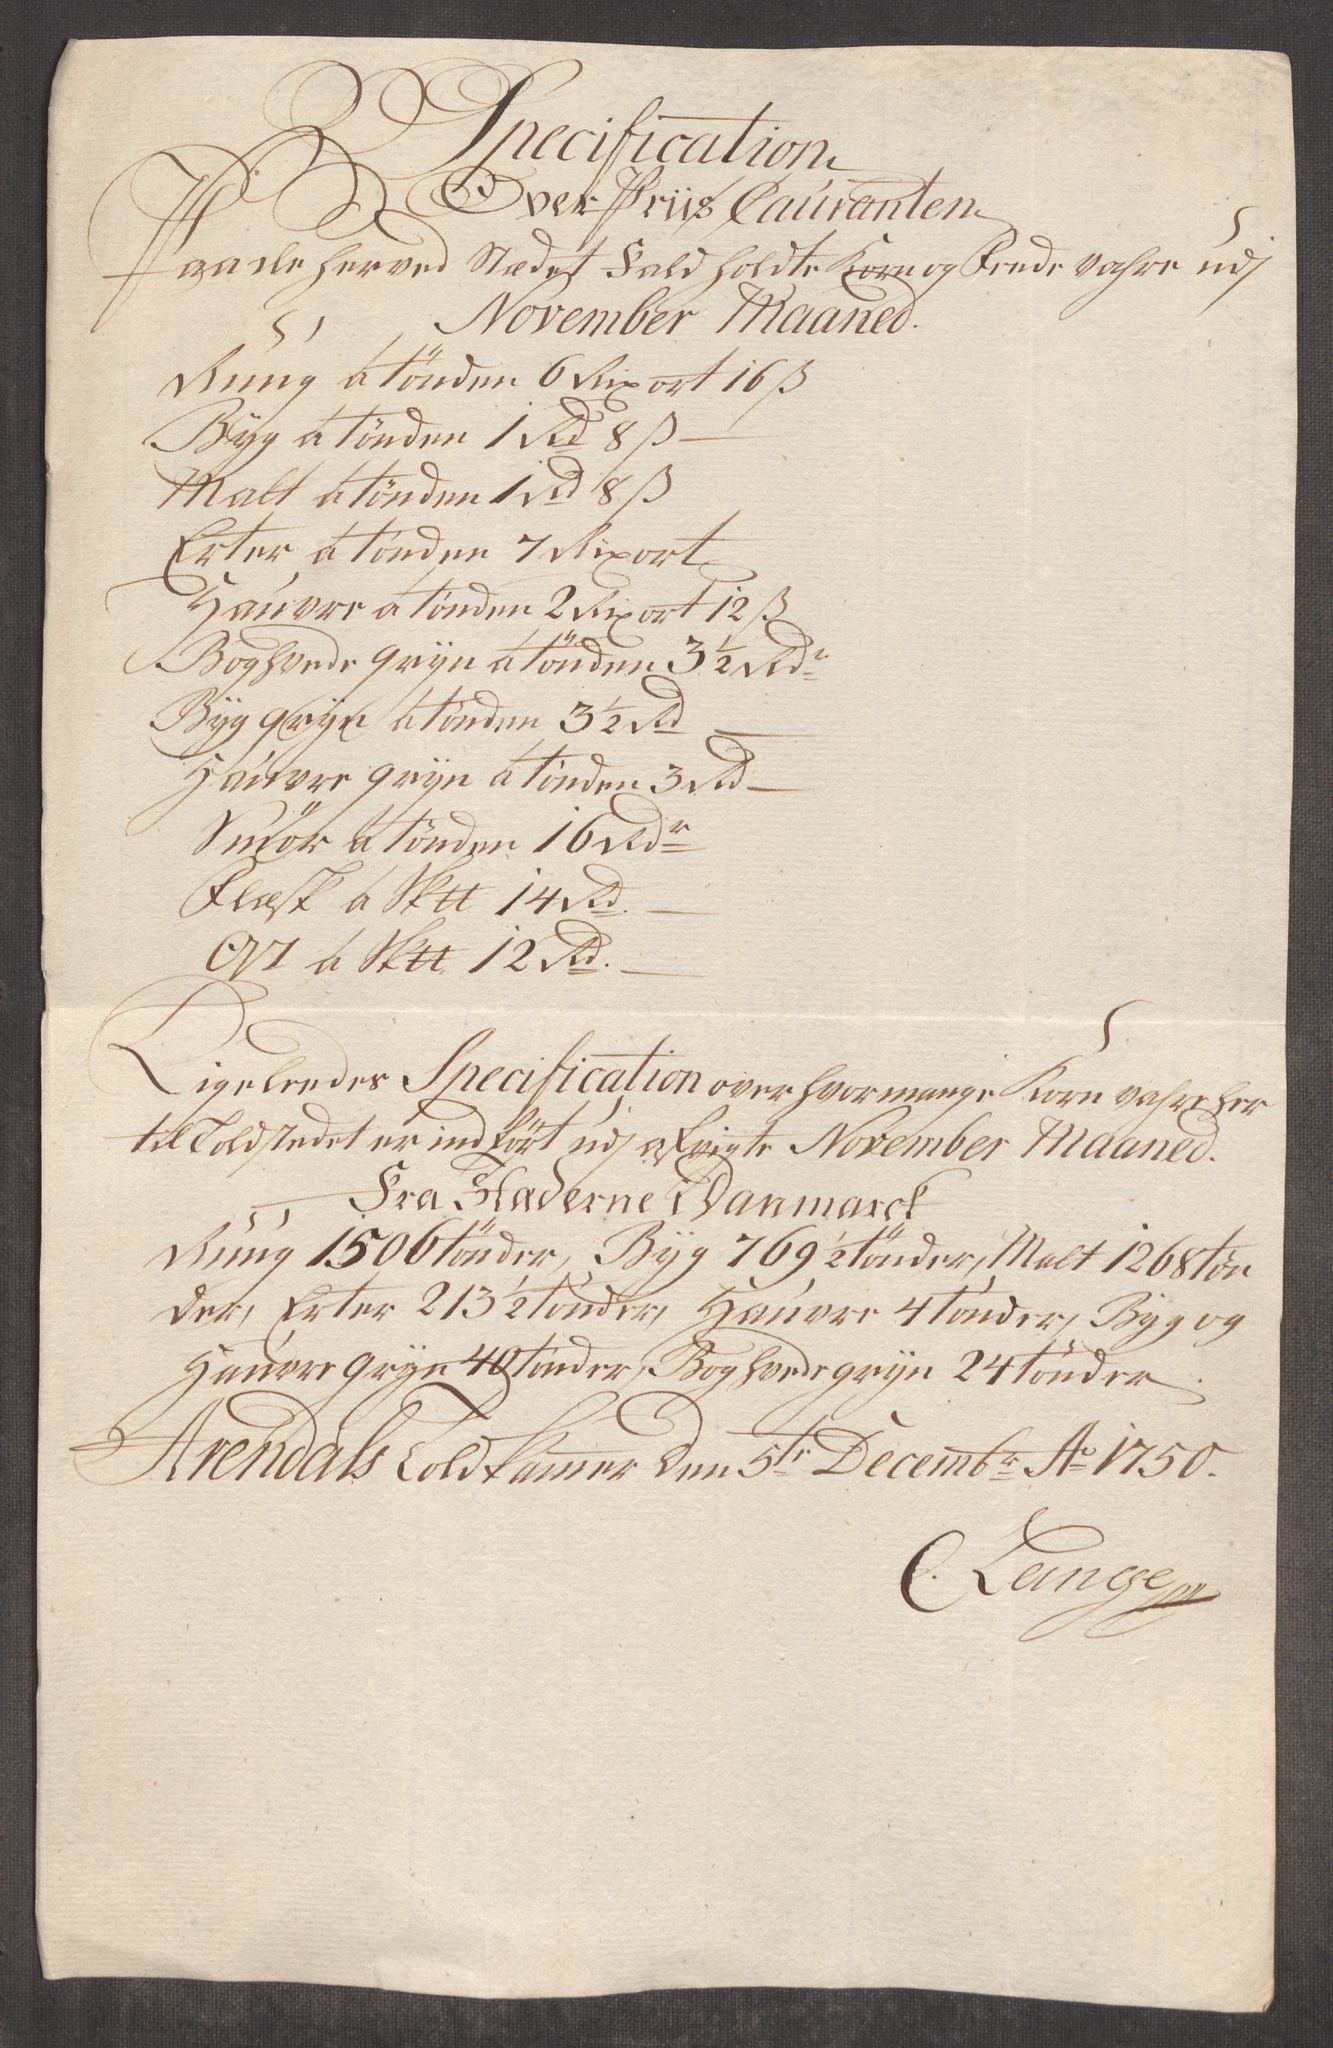 Specification
Over Priis Cauranten
Paa de her ved Stædet Fald holdte Korn og Fede vahre udj
November Maaned.
Rúúg á tönden 6 Rixort 16 ß
Byg á tönden 1 Rd 8 ß
Malt á tönden 1 Rd 8 ß
Erter á tönden 7 Rixort
Haúvre á tönden 2 Rixort 12 ß
Boghvede gryn á tönden 3 1/2 Rdr
Byg gryn á tönden 3 1/2 Rd
Haúvre gryn á tönden 3 Rd
Smör á tönden 16 Rdr
Flæsk á Sk℔ 14 Rd.
Ost á Sk℔ 12 Rd.
Ligeleedes Specification over hvormange Korn vahre her
til Toldstedet er indført údj afvigte November Maaned.
Fra Stæderne i Danmarck
Rúúg 1506 tönder, Byg 769 1/2 tönder, Malt 1268 tön
der, Erter 213 1/2 tönder, Haúvre 4 tönder, Byg og
Haúvre gryn 40 tönder, Boghvede gryn 24 tönder.
Arendals Toldkamer den 5te Decembr Ao 1750.
C. Lange